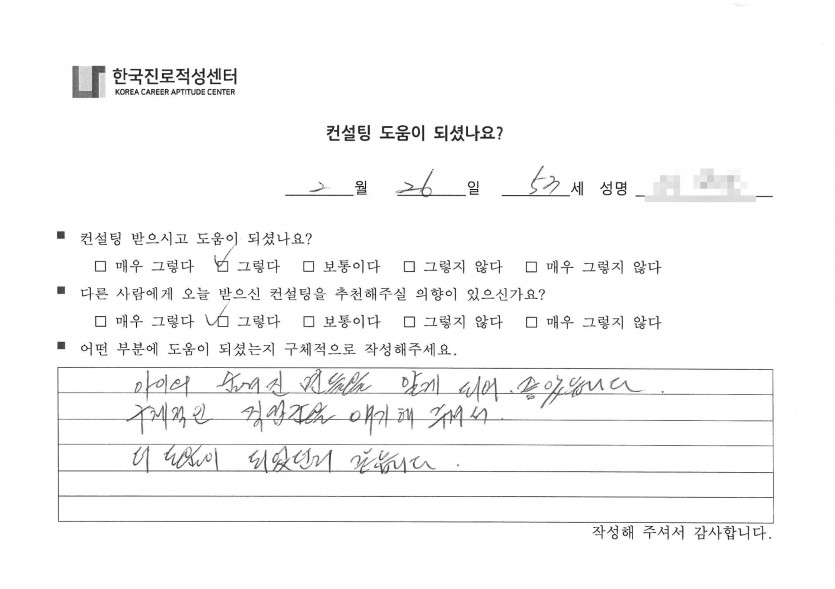 한국진로적성센터
KOREA CAREER APTITUDE CENTER
컨설팅 도움이 되셨나요?
2 월 26 일 53 세 성명
■ 컨설팅 받으시고 도움이 되셨나요?
□ 매우 그렇다 □ 그렇다 □ 보통이다 □ 그렇지 않다 □ 매우 그렇지 않다
■ 다른 사람에게 오늘 받으신 컨설팅을 추천해주실 의향이 있으신가요?
□ 매우 그렇다 □ 그렇다 □ 보통이다 □ 그렇지 않다 □ 매우 그렇지 않다
■ 어떤 부분에 도움이 되셨는지 구체적으로 작성해주세요.
아이의 숨겨진 면들을 알게 되어. 좋았습니다.
구체적인 직업군을 얘기해 주셔서.
더 도움이 되었던거 같습니다.
작성해 주셔서 감사합니다.